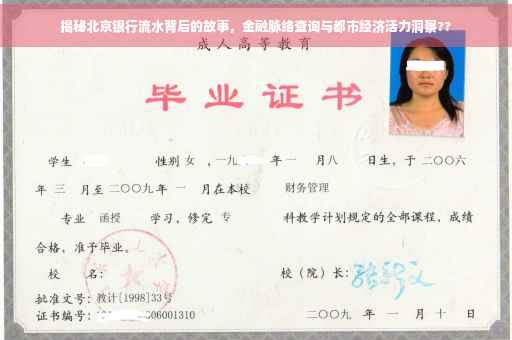 揭秘北京银行流水背后的故事，金融脉络查询与都市经济活力洞察??
成人高等教育
毕业证书
学生 性别 女 ，一九 年 一 月八 日生，于二〇〇六
年 三 月至二〇〇九年 一 月在本校 财务管理
专业 函授 学习，修完 专 科教学计划规定的全部课程，成绩
合格，准予毕业。
校 名： 校（院）长：
批准文号：教计[1998]33号
证书编号： 06001310 二〇〇九 年 一 月 十 日